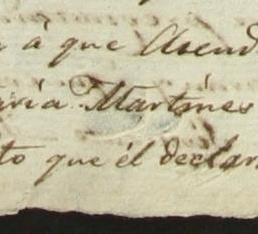 à que Acend
aria Martines
to que él declar